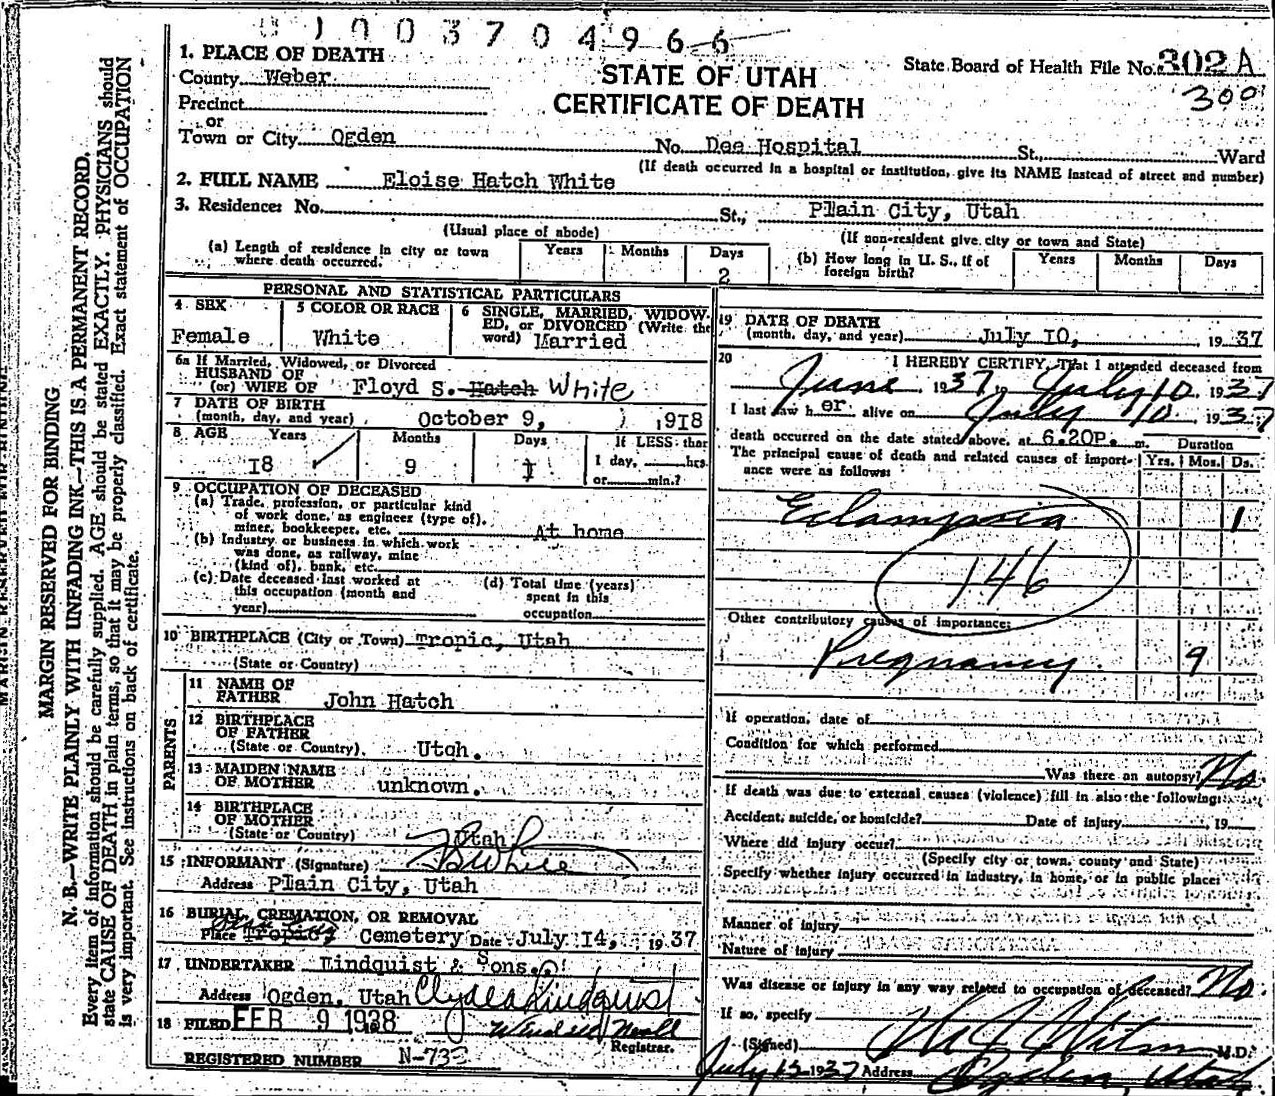 0 1 0 0 3 7 0 4 9 6 6
1. PLACE OF DEATH
County Weber
STATE OF UTAH
State Board of Health File No. 302 A
300
Precinct
CERTIFICATE OF DEATH
or
Town or City Ogden No. Dee Hospital St., Ward
(If death occurred in a hospital or institution, give its NAME instead of street and number)
2. FULL NAME Eloise Hatch White
3. Residence: No. St., Plain City, Utah
(Usual place of abode) (If non-resident give city or town and State)
(a) Length of residence in city or town where death occurred. Years Months Days 2
(b) How long in U. S., if of foreign birth? Years Months Days
PERSONAL AND STATISTICAL PARTICULARS
4 SEX Female
5 COLOR OR RACE White
6 SINGLE, MARRIED, WIDOWED, or DIVORCED (Write the word) Married
6a If Married, Widowed, or Divorced
HUSBAND OF
(or) WIFE OF Floyd S. Hatch White
7 DATE OF BIRTH
(month, day, and year) October 9, 1918
8 AGE Years Months Days If LESS than
18 9 1 1 day, hrs.
or min.?
9 OCCUPATION OF DECEASED
(a) Trade, profession, or particular kind
of work done, as engineer (type of),
miner, bookkeeper, etc. At home
(b) Industry or business in which work
was done, as railway, mine
(kind of), bank, etc.
(c) Date deceased last worked at
this occupation (month and
year)
(d) Total time (years)
spent in this
occupation
10 BIRTHPLACE (City or Town) Tropic, Utah
(State or Country)
PARENTS
11 NAME OF
FATHER John Hatch
12 BIRTHPLACE
OF FATHER
(State or Country) Utah.
13 MAIDEN NAME
OF MOTHER unknown.
14 BIRTHPLACE
OF MOTHER
(State or Country) Utah
15 INFORMANT (Signature)
Address Plain City, Utah
16 BURIAL, CREMATION, OR REMOVAL
Place Tropic Cemetery Date July 14, 1937
17 UNDERTAKER Lindquist & Sons.
Address Ogden, Utah Clyde Lindquist
18 FILED FEB 9 1938
Registrar.
REGISTERED NUMBER N-732
19 DATE OF DEATH
(month, day, and year) July 10, 1937
20 I HEREBY CERTIFY, That I attended deceased from
June 1937 to July 10 1937
I last saw her alive on July 10 1937
death occurred on the date stated above, at 6.20P. m. Duration
The principal cause of death and related causes of importance were as follows: Yrs. Mos. Ds.
Eclampsia 1
146
Other contributory causes of importance:
Pregnancy. 9
If operation, date of
Condition for which performed
Was there an autopsy? No
If death was due to external causes (violence) fill in also the following:
Accident, suicide, or homicide? Date of injury 19
Where did injury occur?
(Specify city or town, county and State)
Specify whether injury occurred in industry, in home, or in public place:
Manner of injury
Nature of injury
Was disease or injury in any way related to occupation of deceased? No
If so, specify
(Signed) M.D.
July 15 1937 Address Ogden, Utah
MARGIN RESERVED FOR BINDING
N. B.—WRITE PLAINLY WITH UNFADING INK—THIS IS A PERMANENT RECORD.
Every item of information should be carefully supplied. AGE should be stated EXACTLY. PHYSICIANS should
state CAUSE OF DEATH in plain terms, so that it may be properly classified. Exact statement of OCCUPATION
is very important. See instructions on back of certificate.